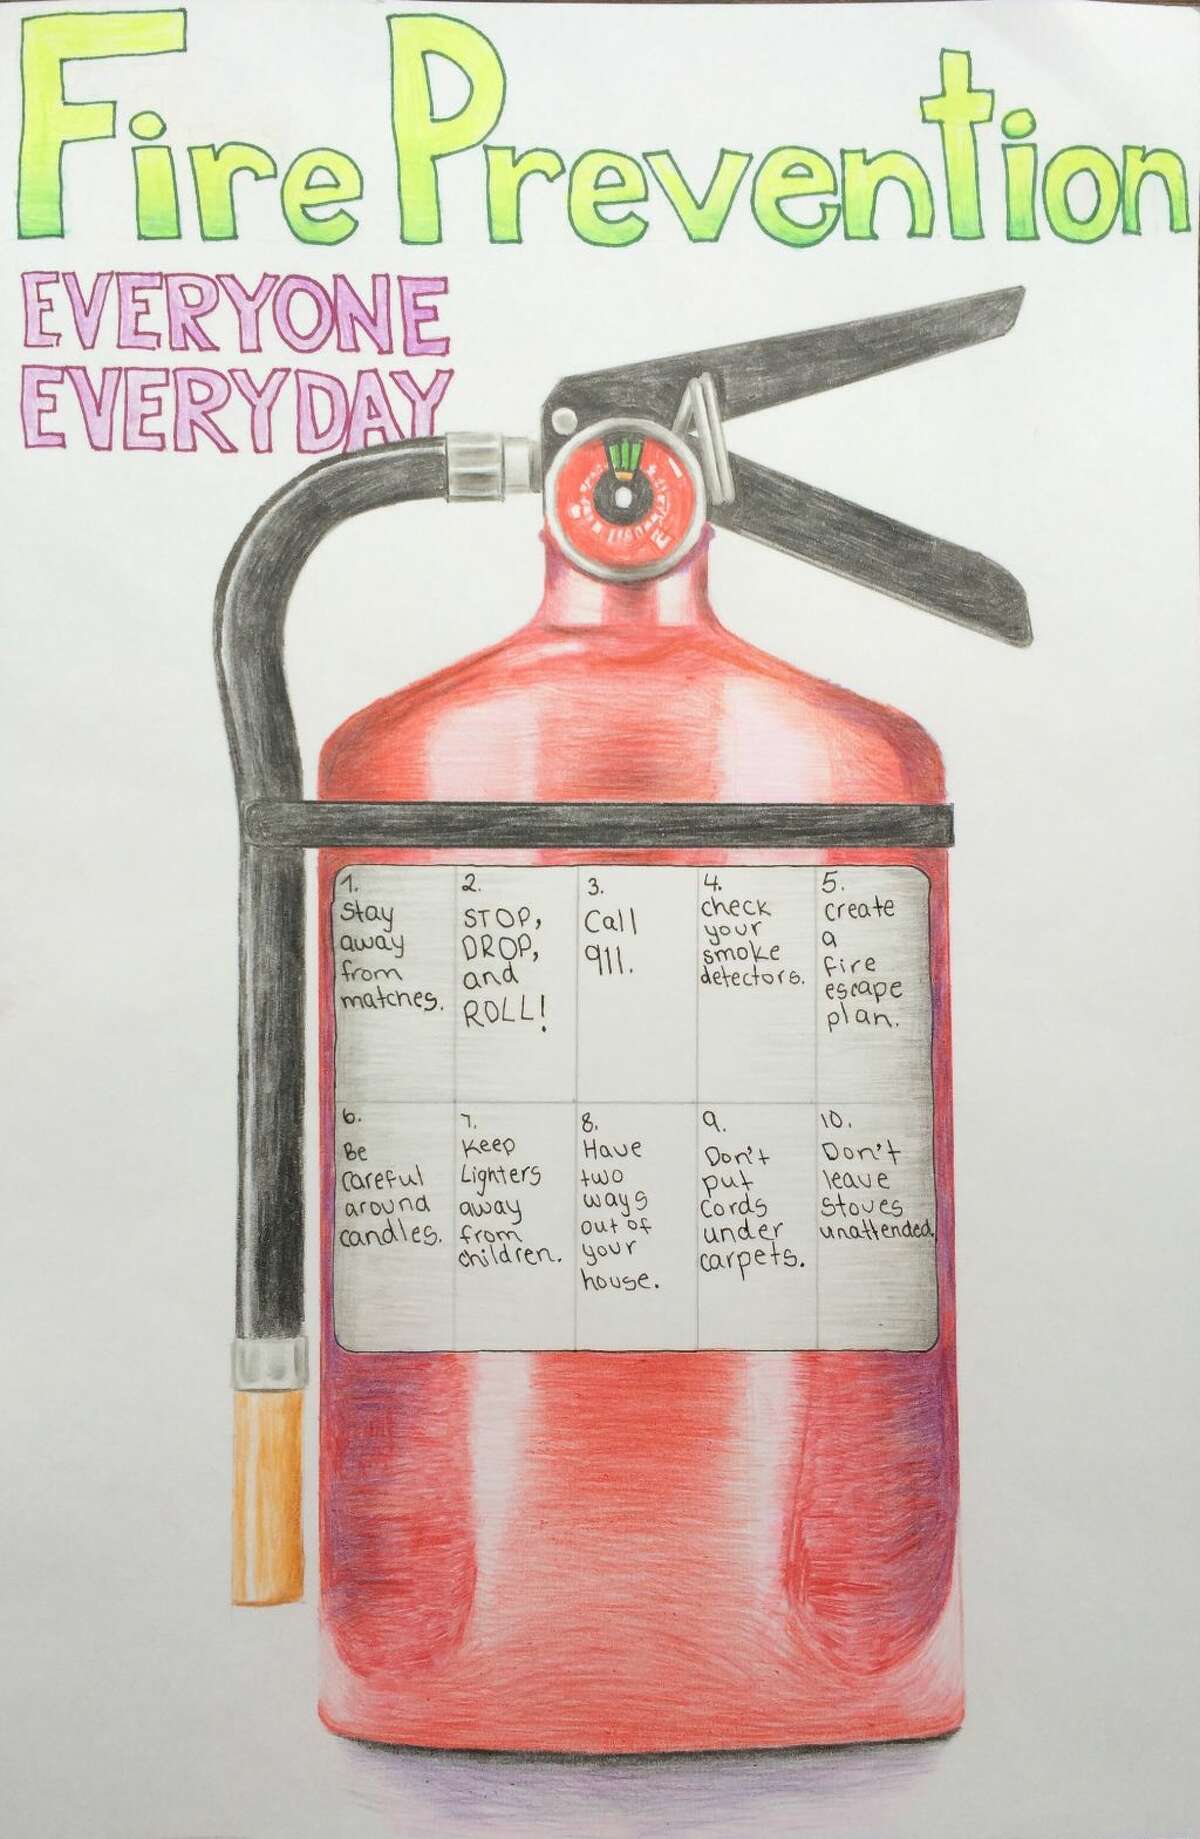 Fire Prevention
EVERYONE
EVERYDAY
1.
Stay
away
from
matches.
2.
STOP,
DROP,
and
ROLL!
3.
Call
911.
4.
check
your
smoke
detectors.
5.
create
a
fire
escape
plan.
6.
Be
careful
around
candles.
7.
Keep
Lighters
away
from
children.
8.
Have
two
ways
out of
your
house.
9.
Don't
put
cords
under
carpets.
10.
Don't
leave
stoves
unattended.